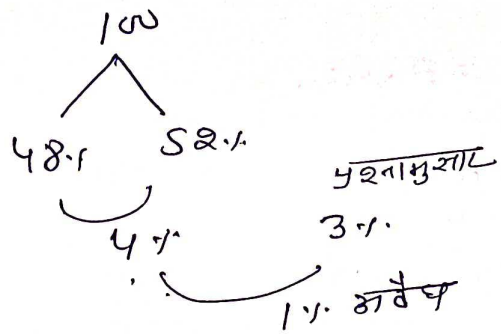 100
48% 52%
प्रश्नानुसार
4% 3%
1% अवैध